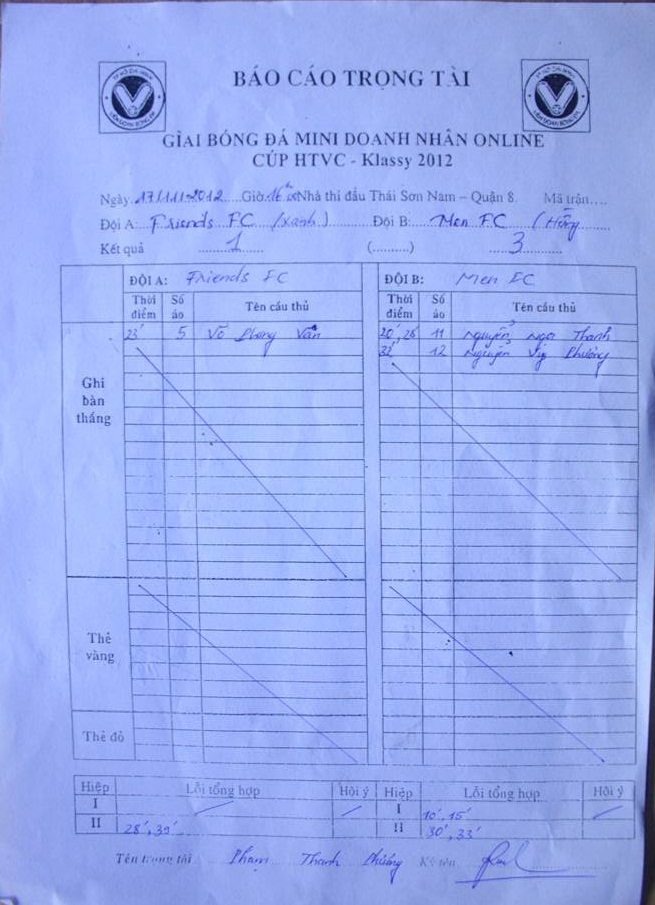 BÁO CÁO TRỌNG TÀI
GIẢI BÓNG ĐÁ MINI DOANH NHÂN ONLINE
CÚP HTVC - Klassy 2012
Ngày 17/11/2012 Giờ 16h Nhà thi đấu Thái Sơn Nam – Quận 8. Mã trận....
Đội A: Friends FC (xanh) Đội B: Men FC (Hồng
Kết quả 1 (.........) 3
ĐỘI A: Friends FC ĐỘI B: Men FC
Thời điểm Số áo Tên cầu thủ Thời điểm Số áo Tên cầu thủ
Ghi bàn thắng
23' 5 Võ Phong Vân 20', 28' 11 Nguyễn Ngọc Thanh
32' 12 Nguyễn Phương
Thẻ vàng
Thẻ đỏ
Hiệp Lỗi tổng hợp Hội ý Hiệp Lỗi tổng hợp Hội ý
I I 10', 15'
II 28', 39' II 30', 33'
Tên trọng tài Phạm Thanh Ký tên